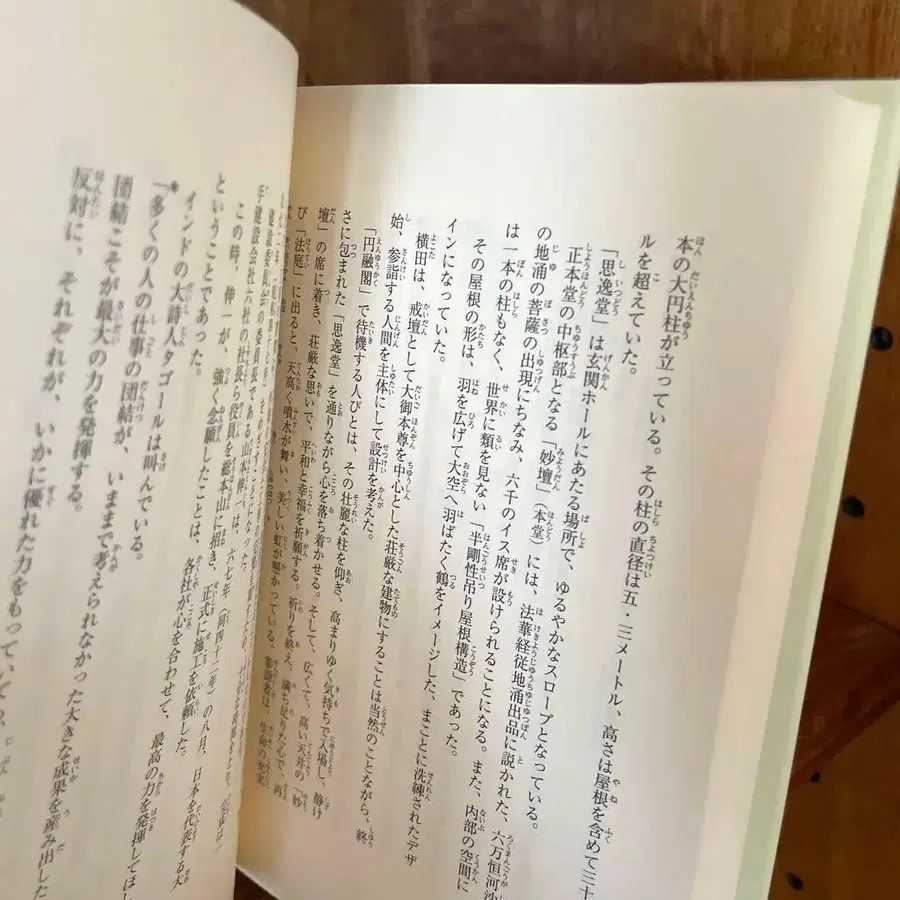 本の大円柱が立っている。その柱の直径は五・三メートル、高さは屋根を含めて三十
ルを超えていた。
「思逸堂」は玄関ホールにあたる場所で、ゆるやかなスロープとなっている。
正本堂の中枢部となる「妙壇」（本堂）には、法華経従地涌出品に説かれた、六万恒河沙
の地涌の菩薩の出現にちなみ、六千のイス席が設けられることになる。また、内部の空間に
は一本の柱もなく、世界に類を見ない「半剛性吊り屋根構造」であった。
その屋根の形は、羽を広げて大空へ羽ばたく鶴をイメージした、まことに洗練されたデザ
インになっていた。
横田は、戒壇として大御本尊を中心とした荘厳な建物にすることは当然のことながら、終
始、参詣する人間を主体にして設計を考えた。
「円融閣」で待機する人びとは、その壮麗な柱を仰ぎ、高まりゆく気持ちで入場し、静け
さに包まれた「思逸堂」を通りながら心を落ち着かせる。そして、広くて、高い天井の「妙
壇」の席に着き、荘厳な思いで、平和と幸福を祈願する。祈りを終え、満ち足りた心で、再
び「法庭」に出ると、天高く噴水が舞い、美しい虹が懸かっている。参詣者は、生命の充実
手建設会社六社の社長ら役員を総本山に招き、正式に施工を依頼した。
この時、伸一が、強く念願したことは、各社が心を合わせて、最高の力を発揮してほし
ということであった。
インドの大詩人タゴールは叫んでいる。
「多くの人の仕事の団結が、いままで考えられなかった大きな成果を産み出した
団結こそが最大の力を発揮する。
反対に、それぞれが、いかに優れた力をもっていても、